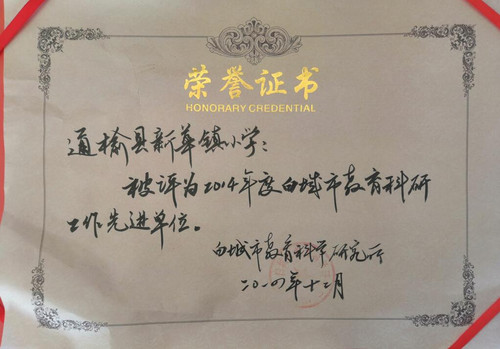 荣誉证书
HONORARY CREDENTIAL
通榆县新华镇小学：
被评为2014年度白城市教育科研
工作先进单位。
白城市教育科学研究所
二〇一四年十二月